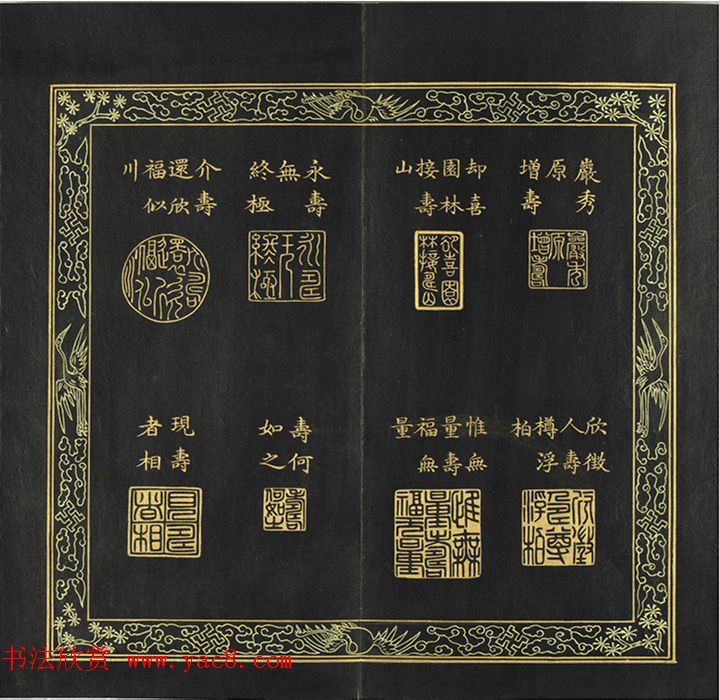 巖秀原增壽
却喜園林接壽山
永壽無終極
介壽還欣福似川
欣徵人壽樽浮柏
惟無量壽福無量
壽何如之
現壽者相
书法欣赏 www.yac8.com